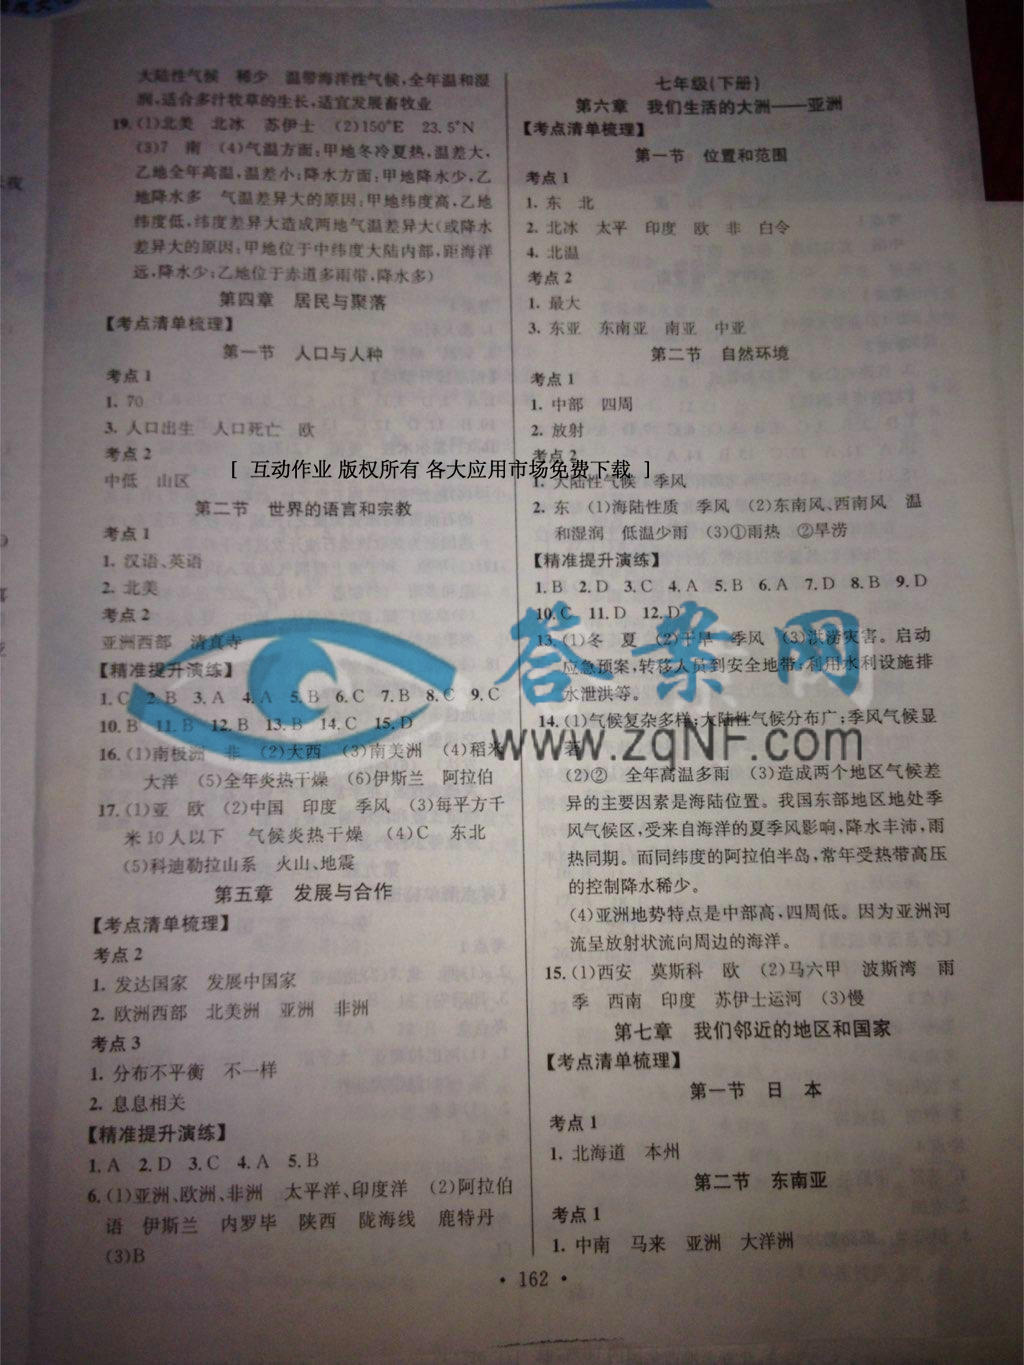 大陆性气候　稀少　温带海洋性气候,全年温和湿
润,适合多汁牧草的生长,适宜发展畜牧业
19.(1)北美　北冰　苏伊士　(2)150°E　23.5°N
(3)7　南　(4)气温方面:甲地冬冷夏热,温差大,
乙地全年高温,温差小;降水方面:甲地降水少,乙
地降水多　气温差异大的原因:甲地纬度高,乙地
纬度低,纬度差异大造成两地气温差异大(或降水
差异大的原因:甲地位于中纬度大陆内部,距海洋
远,降水少;乙地位于赤道多雨带,降水多)
第四章　居民与聚落
【考点清单梳理】
第一节　人口与人种
考点1
1. 70
3. 人口出生　人口死亡　欧
考点2
中低　山区
第二节　世界的语言和宗教
考点1
1. 汉语、英语
2. 北美
考点2
亚洲西部　清真寺
【精准提升演练】
1. C　2. B　3. A　4. A　5. B　6. C　7. B　8. C　9. C
10. B　11. B　12. B　13. B　14. C　15. D
16. (1)南极洲　非　(2)大西　(3)南美洲　(4)稻米
大洋　(5)全年炎热干燥　(6)伊斯兰　阿拉伯
17. (1)亚　欧　(2)中国　印度　季风　(3)每平方千
米10人以下　气候炎热干燥　(4)C　东北
(5)科迪勒拉山系　火山、地震
第五章　发展与合作
【考点清单梳理】
考点2
1. 发达国家　发展中国家
2. 欧洲西部　北美洲　亚洲　非洲
考点3
1. 分布不平衡　不一样
2. 息息相关
【精准提升演练】
1. A　2. D　3. C　4. A　5. B
6. (1)亚洲、欧洲、非洲　太平洋、印度洋　(2)阿拉伯
语　伊斯兰　内罗毕　陕西　陇海线　鹿特丹
(3)B
七年级(下册)
第六章　我们生活的大洲——亚洲
【考点清单梳理】
第一节　位置和范围
考点1
1. 东　北
2. 北冰　太平　印度　欧　非　白令
4. 北温
考点2
1. 最大
3. 东亚　东南亚　南亚　中亚
第二节　自然环境
考点1
1. 中部　四周
2. 放射
考点2
1. 大陆性气候　季风
2. 东　(1)海陆性质　季风　(2)东南风、西南风　温
和湿润　低温少雨　(3)①雨热　②旱涝
【精准提升演练】
1. B　2. D　3. C　4. A　5. B　6. A　7. D　8. B　9. D
10. C　11. D　12. D
13. (1)冬　夏　(2)干旱　季风　(3)洪涝灾害。启动
应急预案,转移人员到安全地带;利用水利设施排
水泄洪等。
14. (1)气候复杂多样;大陆性气候分布广;季风气候显
著
(2)②　全年高温多雨　(3)造成两个地区气候差
异的主要因素是海陆位置。我国东部地区地处季
风气候区,受来自海洋的夏季风影响,降水丰沛,雨
热同期。而同纬度的阿拉伯半岛,常年受热带高压
的控制降水稀少。
(4)亚洲地势特点是中部高,四周低。因为亚洲河
流呈放射状流向周边的海洋。
15. (1)西安　莫斯科　欧　(2)马六甲　波斯湾　雨
季　西南　印度　苏伊士运河　(3)慢
第七章　我们邻近的地区和国家
【考点清单梳理】
第一节　日　本
考点1
1. 北海道　本州
第二节　东南亚
考点1
1. 中南　马来　亚洲　大洋洲
• 162 •
[ 互动作业 版权所有 各大应用市场免费下载 ]
答案网
www.zqNF.com